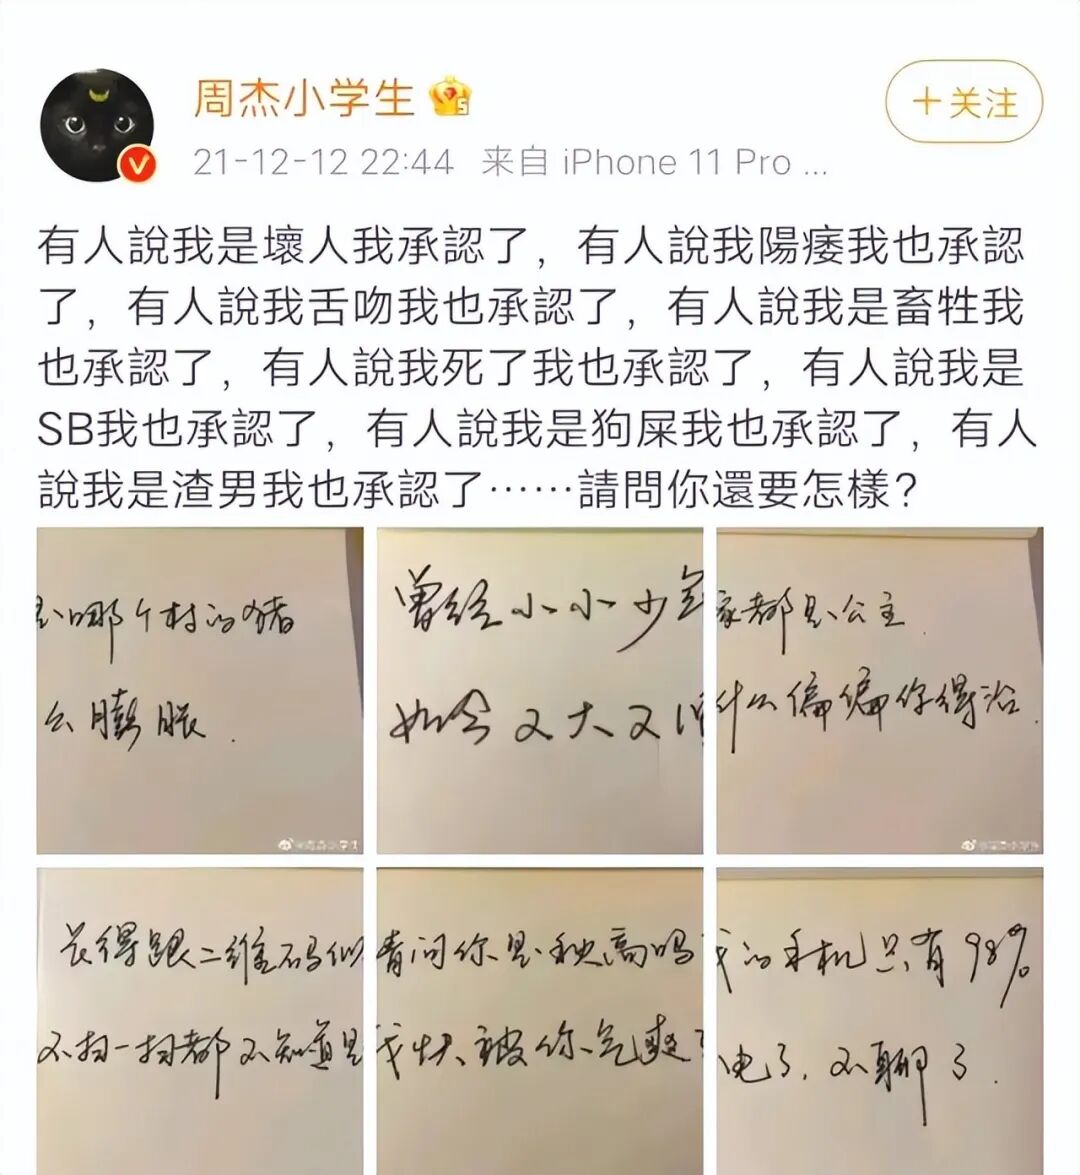 周杰小学生
+关注
21-12-12 22:44 来自 iPhone 11 Pro ...
有人說我是壞人我承認了，有人說我陽痿我也承認
了，有人說我舌吻我也承認了，有人說我是畜牲我
也承認了，有人說我死了我也承認了，有人說我是
SB我也承認了，有人說我是狗屎我也承認了，有人
說我是渣男我也承認了……請問你還要怎樣？
是哪个村的猪
么膨胀
曾经小小少年
如今又大又
家都是公主
什么偏偏你得治
长得跟二维码似
不扫一扫都不知道是
请问你是秋高吗
我快被你气爽了
我的手机只有98%
电了，不聊了